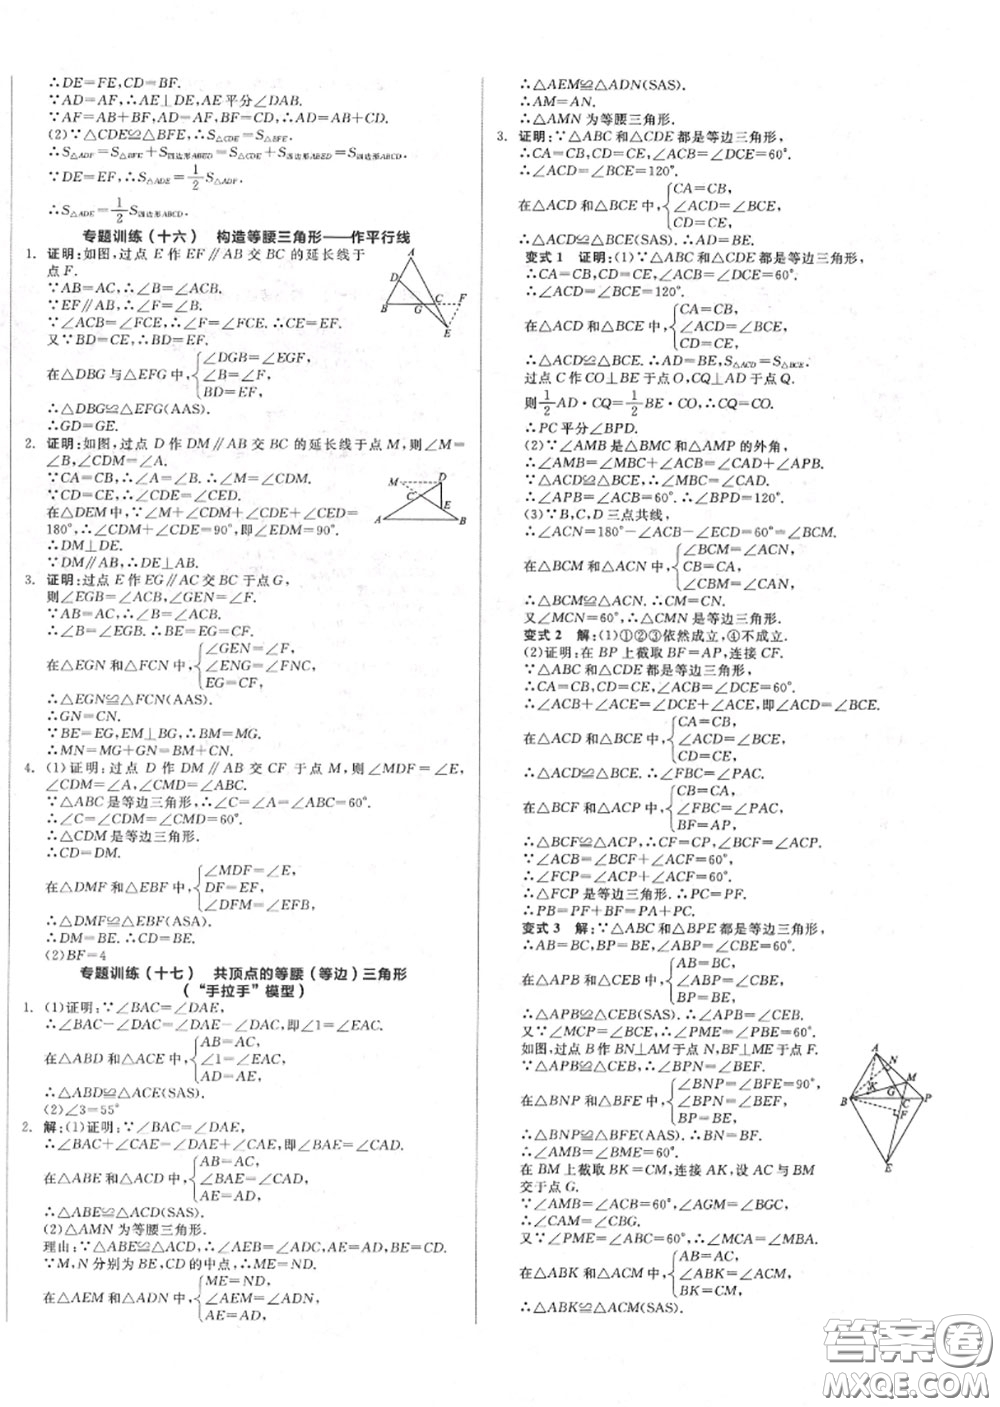 ∴DE=FE,CD=BF.
∵AD=AF,∴AE⊥DE,AE平分∠DAB.
∵AF=AB+BF,AD=AF,CD=BF,∴AD=AB+CD.
(2)∵△CDE≌△BFE,∴S△CDE=S△BFE.
∴S△ADF=S△BFE+S四边形ABED=S△CDE+S四边形ABED=S四边形ABCD.
∵DE=EF,∴S△ADE=1/2S△ADF.
∴S△ADE=1/2S四边形ABCD.
专题训练(十六) 构造等腰三角形——作平行线
1. 证明:如图,过点E作EF∥AB交BC的延长线于
点F.
∵AB=AC,∴∠B=∠ACB.
∵EF∥AB,∴∠F=∠B.
∵∠ACB=∠FCE,∴∠F=∠FCE.∴CE=EF.
又∵BD=CE,∴BD=EF.
在△DBG与△EFG中,{∠DGB=∠EGF,
∠B=∠F,
BD=EF,
∴△DBG≌△EFG(AAS).
∴GD=GE.
A
D
B
G
C
F
E
2. 证明:如图,过点D作DM∥AB交BC的延长线于点M,则∠M=
∠B,∠CDM=∠A.
∵CA=CB,∴∠A=∠B.∴∠M=∠CDM.
∵CD=CE,∴∠CDE=∠CED.
在△DEM中,∵∠M+∠CDM+∠CDE+∠CED=
180°,∴∠CDM+∠CDE=90°,即∠EDM=90°.
∴DM⊥DE.
∵DM∥AB,∴DE⊥AB.
M
D
C
E
A
B
3. 证明:过点E作EG∥AC交BC于点G,
则∠EGB=∠ACB,∠GEN=∠F.
∵AB=AC,∴∠B=∠ACB.
∴∠B=∠EGB.∴BE=EG=CF.
在△EGN和△FCN中,{∠GEN=∠F,
∠ENG=∠FNC,
EG=CF,
∴△EGN≌△FCN(AAS).
∴GN=CN.
∵BE=EG,EM⊥BG,∴BM=MG.
∴MN=MG+GN=BM+CN.
4. (1)证明:过点D作DM∥AB交CF于点M,则∠MDF=∠E,
∠CDM=∠A,∠CMD=∠ABC.
∵△ABC是等边三角形,∴∠C=∠A=∠ABC=60°.
∴∠C=∠CDM=∠CMD=60°.
∴△CDM是等边三角形.
∴CD=DM.
在△DMF和△EBF中,{∠MDF=∠E,
DF=EF,
∠DFM=∠EFB,
∴△DMF≌△EBF(ASA).
∴DM=BE.∴CD=BE.
(2)BF=4
专题训练(十七) 共顶点的等腰(等边)三角形
(“手拉手”模型)
1. (1)证明:∵∠BAC=∠DAE,
∴∠BAC−∠DAC=∠DAE−∠DAC,即∠1=∠EAC.
在△ABD和△ACE中,{AB=AC,
∠1=∠EAC,
AD=AE,
∴△ABD≌△ACE(SAS).
(2)∠3=55°
2. 解:(1)证明:∵∠BAC=∠DAE,
∴∠BAC+∠CAE=∠DAE+∠CAE,即∠BAE=∠CAD.
在△ABE和△ACD中,{AB=AC,
∠BAE=∠CAD,
AE=AD,
∴△ABE≌△ACD(SAS).
(2)△AMN为等腰三角形.
理由:∵△ABE≌△ACD,∴∠AEB=∠ADC,BE=CD.
∵M,N分别为BE,CD的中点,∴ME=ND.
在△AEM和△ADN中,{ME=ND,
∠AEM=∠ADN,
AE=AD,
∴△AEM≌△ADN(SAS).
∴AM=AN.
∴△AMN为等腰三角形.
3. 证明:∵△ABC和△CDE都是等边三角形,
∴CA=CB,CD=CE,∠ACB=∠DCE=60°.
∴∠ACD=∠BCE=120°.
在△ACD和△BCE中,{CA=CB,
∠ACD=∠BCE,
CD=CE,
∴△ACD≌△BCE(SAS).∴AD=BE.
变式1 证明:(1)∵△ABC和△CDE都是等边三角形,
∴CA=CB,CD=CE,∠ACB=∠DCE=60°.
∴∠ACD=∠BCE=120°.
在△ACD和△BCE中,{CA=CB,
∠ACD=∠BCE,
CD=CE,
∴△ACD≌△BCE.∴AD=BE,S△ACD=S△BCE.
过点C作CO⊥BE于点O,CQ⊥AD于点Q.
则1/2AD·CQ=1/2BE·CO,∴CQ=CO.
∴PC平分∠BPD.
(2)∵∠AMB是△BMC和△AMP的外角,
∴∠AMB=∠MBC+∠ACB=∠CAD+∠APB.
∵△ACD≌△BCE,∴∠MBC=∠CAD.
∴∠APB=∠ACB=60°.∴∠BPD=120°.
(3)∵B,C,D三点共线,
∴∠ACN=180°−∠ACB−∠ECD=60°=∠BCM.
在△BCM和△ACN中,{∠BCM=∠ACN,
CB=CA,
∠CBM=∠CAN,
∴△BCM≌△ACN.∴CM=CN.
又∠MCN=60°,∴△CMN是等边三角形.
变式2 解:(1)①②③依然成立,④不成立.
(2)证明:在BP上截取BF=AP,连接CF.
∵△ABC和△CDE都是等边三角形,
∴CA=CB,CD=CE,∠ACB=∠DCE=60°.
∴∠ACB+∠ACE=∠DCE+∠ACE,即∠ACD=∠BCE.
在△ACD和△BCE中,{CA=CB,
∠ACD=∠BCE,
CD=CE,
∴△ACD≌△BCE.∴∠FBC=∠PAC.
在△BCF和△ACP中,{CB=CA,
∠FBC=∠PAC,
BF=AP,
∴△BCF≌△ACP.∴CF=CP,∠BCF=∠ACP.
∵∠ACB=∠BCF+∠ACF=60°,
∴∠FCP=∠ACP+∠ACF=60°.
∴△FCP是等边三角形.∴PC=PF.
∴PB=PF+BF=PA+PC.
变式3 解:∵△ABC和△BPE都是等边三角形,
∴AB=BC,BP=BE,∠ABC=∠PBE=60°.
在△APB和△CEB中,{AB=BC,
∠ABP=∠CBE,
BP=BE,
∴△APB≌△CEB(SAS).∴∠APB=∠CEB.
又∵∠MCP=∠BCE,∴∠PME=∠PBE=60°.
如图,过点B作BN⊥AM于点N,BF⊥ME于点F.
∵△APB≌△CEB,∴∠BPN=∠BEF.
在△BNP和△BFE中,{∠BNP=∠BFE=90°,
∠BPN=∠BEF,
BP=BE,
∴△BNP≌△BFE(AAS).∴BN=BF.
∴∠AMB=∠BME=60°.
在BM上截取BK=CM,连接AK,设AC与BM
交于点G.
∵∠AMB=∠ACB=60°,∠AGM=∠BGC,
∴∠CAM=∠CBG.
又∵∠PME=∠ABC=60°,∴∠MCA=∠MBA.
在△ABK和△ACM中,{AB=AC,
∠ABK=∠ACM,
BK=CM,
∴△ABK≌△ACM(SAS).
A
N
M
K
G
B
C
P
F
E
答案圈
MXQE.COM